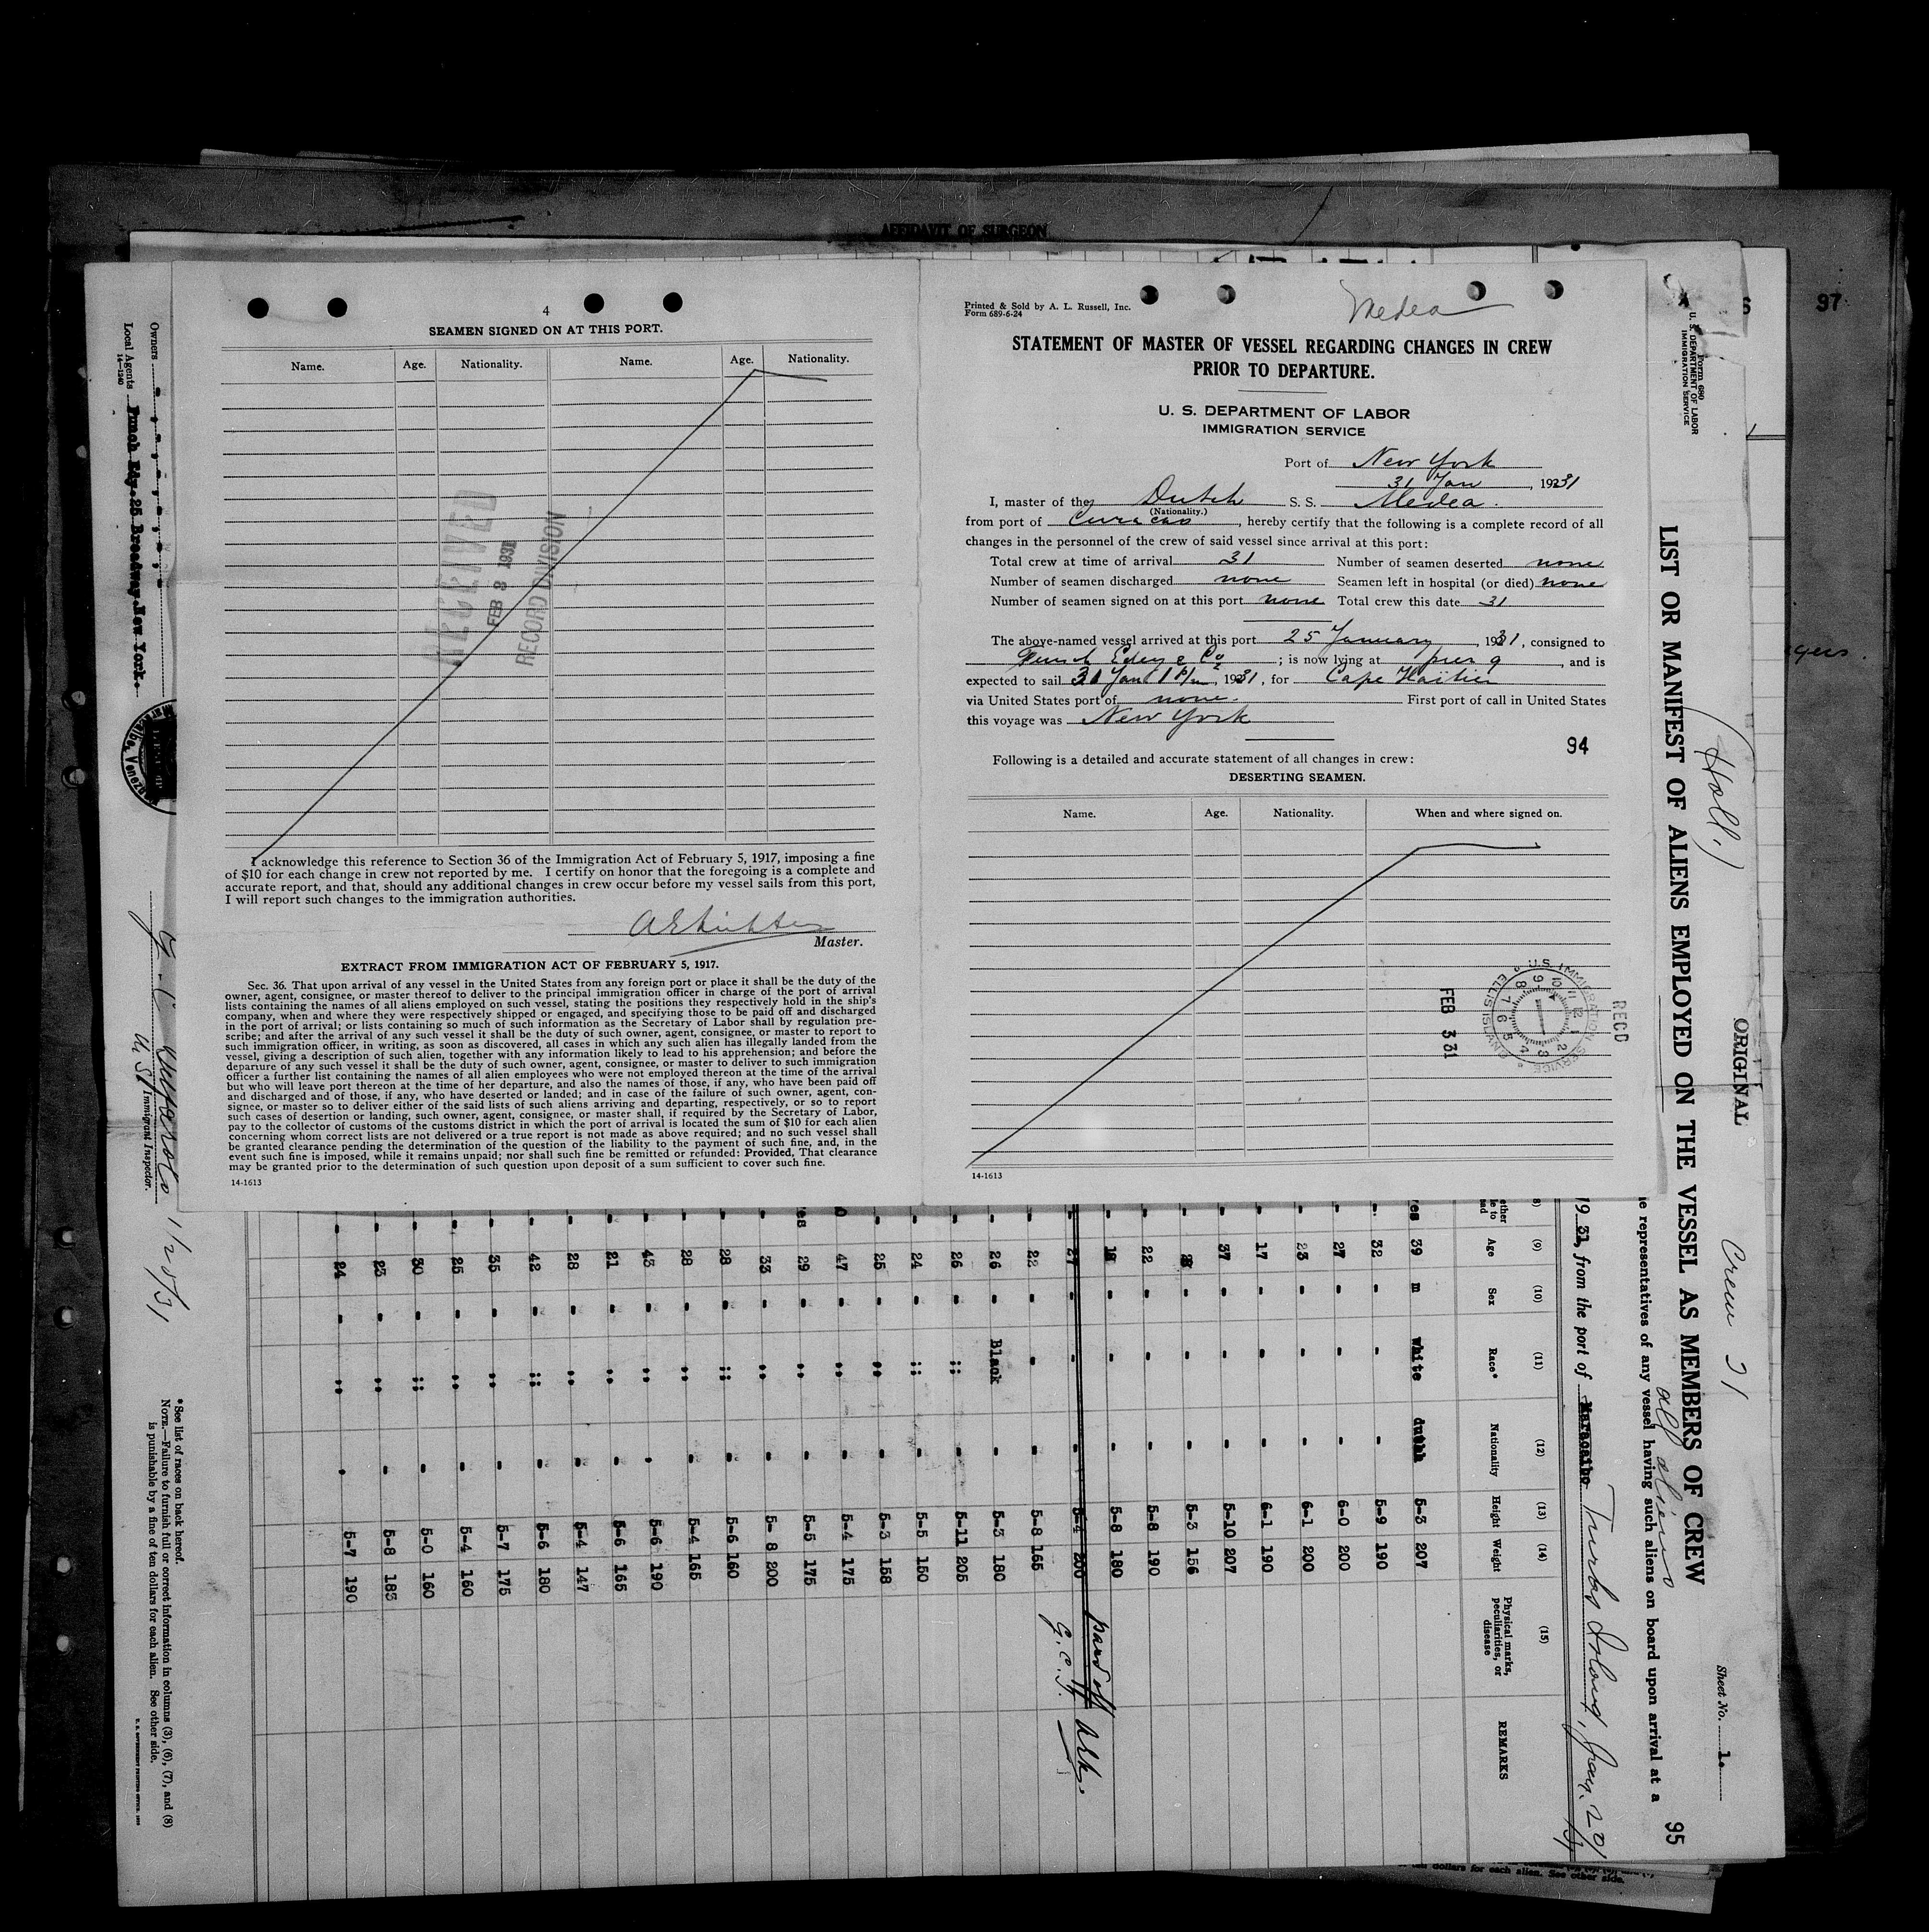 AFFIDAVIT OF SURGEON
97
4
SEAMEN SIGNED ON AT THIS PORT.
Name. Age. Nationality. Name. Age. Nationality.
RECEIVED
FEB 3 1931
RECORD DIVISION
I acknowledge this reference to Section 36 of the Immigration Act of February 5, 1917, imposing a fine
of $10 for each change in crew not reported by me. I certify on honor that the foregoing is a complete and
accurate report, and that, should any additional changes in crew occur before my vessel sails from this port,
I will report such changes to the immigration authorities.
Master.
EXTRACT FROM IMMIGRATION ACT OF FEBRUARY 5, 1917.
Sec. 36. That upon arrival of any vessel in the United States from any foreign port or place it shall be the duty of the
owner, agent, consignee, or master thereof to deliver to the principal immigration officer in charge of the port of arrival
lists containing the names of all aliens employed on such vessel, stating the positions they respectively hold in the ship's
company, when and where they were respectively shipped or engaged, and specifying those to be paid off and discharged
in the port of arrival; or lists containing so much of such information as the Secretary of Labor shall by regulation pre-
scribe; and after the arrival of any such vessel it shall be the duty of such owner, agent, consignee, or master to report to
such immigration officer, in writing, as soon as discovered, all cases in which any such alien has illegally landed from the
vessel, giving a description of such alien, together with any information likely to lead to his apprehension; and before the
departure of any such vessel it shall be the duty of such owner, agent, consignee, or master to deliver to such immigration
officer a further list containing the names of all alien employees who were not employed thereon at the time of the arrival
but who will leave port thereon at the time of her departure, and also the names of those, if any, who have been paid off
and discharged and of those, if any, who have deserted or landed; and in case of the failure of such owner, agent, con-
signee, or master so to deliver either of the said lists of such aliens arriving and departing, respectively, or so to report
such cases of desertion or landing, such owner, agent, consignee, or master shall, if required by the Secretary of Labor,
pay to the collector of customs of the customs district in which the port of arrival is located the sum of $10 for each alien
concerning whom correct lists are not delivered or a true report is not made as above required; and no such vessel shall
be granted clearance pending the determination of the question of the liability to the payment of such fine, and, in the
event such fine is imposed, while it remains unpaid; nor shall such fine be remitted or refunded: Provided, That clearance
may be granted prior to the determination of such question upon deposit of a sum sufficient to cover such fine.
14-1613
Printed & Sold by A. L. Russell, Inc.
Form 689-6-24
Medea
STATEMENT OF MASTER OF VESSEL REGARDING CHANGES IN CREW
PRIOR TO DEPARTURE.
U. S. DEPARTMENT OF LABOR
IMMIGRATION SERVICE
Port of New York
31 Jan, 1931
I, master of the Dutch S. S. Medea.
(Nationality.)
from port of Curacao, hereby certify that the following is a complete record of all
changes in the personnel of the crew of said vessel since arrival at this port:
Total crew at time of arrival 31 Number of seamen deserted none
Number of seamen discharged none Seamen left in hospital (or died) none
Number of seamen signed on at this port none Total crew this date 31
The above-named vessel arrived at this port 25 January, 1931, consigned to
Funch Edye & Co; is now lying at pier 9, and is
expected to sail 31 Jan 1 P/m, 1931, for Cape Haitien
via United States port of none. First port of call in United States
this voyage was New York
94
Following is a detailed and accurate statement of all changes in crew:
DESERTING SEAMEN.
Name. Age. Nationality. When and where signed on.
U.S. IMMIGRATION SERVICE ELLIS ISLAND
RECD
FEB 3 31
14-1613
Form 680
U. S. DEPARTMENT OF LABOR
IMMIGRATION SERVICE
(Holl.)
ORIGINAL
Crew 31
Sheet No. 1.
LIST OR MANIFEST OF ALIENS EMPLOYED ON THE VESSEL AS MEMBERS OF CREW
all aliens
95
representatives of any vessel having such aliens on board upon arrival at a
19 31, from the port of Maracaibo Turks Island, Jan. 20/31
(9) (10) (11) (12) (13) (14) (15)
Age Sex Race* Nationality Height Weight Physical marks, peculiarities, or disease REMARKS
39 m white dutch 5-3 207
32 5-9 190
27 6-0 200
23 6-1 200
17 6-1 190
37 5-10 207
5-3 156
22 5-8 190
18 5-8 180
27 5-4 200 paid off
G. C. J.
22 5-8 165
26 Black 5-3 180
26 5-11 205
24 5-5 150
25 5-3 158
47 5-4 175
29 5-5 175
33 5-8 200
28 5-6 160
28 5-4 165
43 5-6 190
21 5-6 165
28 5-4 147
42 5-6 180
35 5-7 175
25 5-4 160
30 5-0 160
23 5-8 183
24 5-7 190
*See list of races on back hereof.
NOTE.—Failure to furnish full or correct information in columns (3), (6), (7), and (8)
is punishable by a fine of ten dollars for each alien. See other side.
Owners
Local Agents Funch Edy.25 Broadway.New York.
14-1240
Immigrant Inspector.
1/25/31
dollars for each alien. See other side.